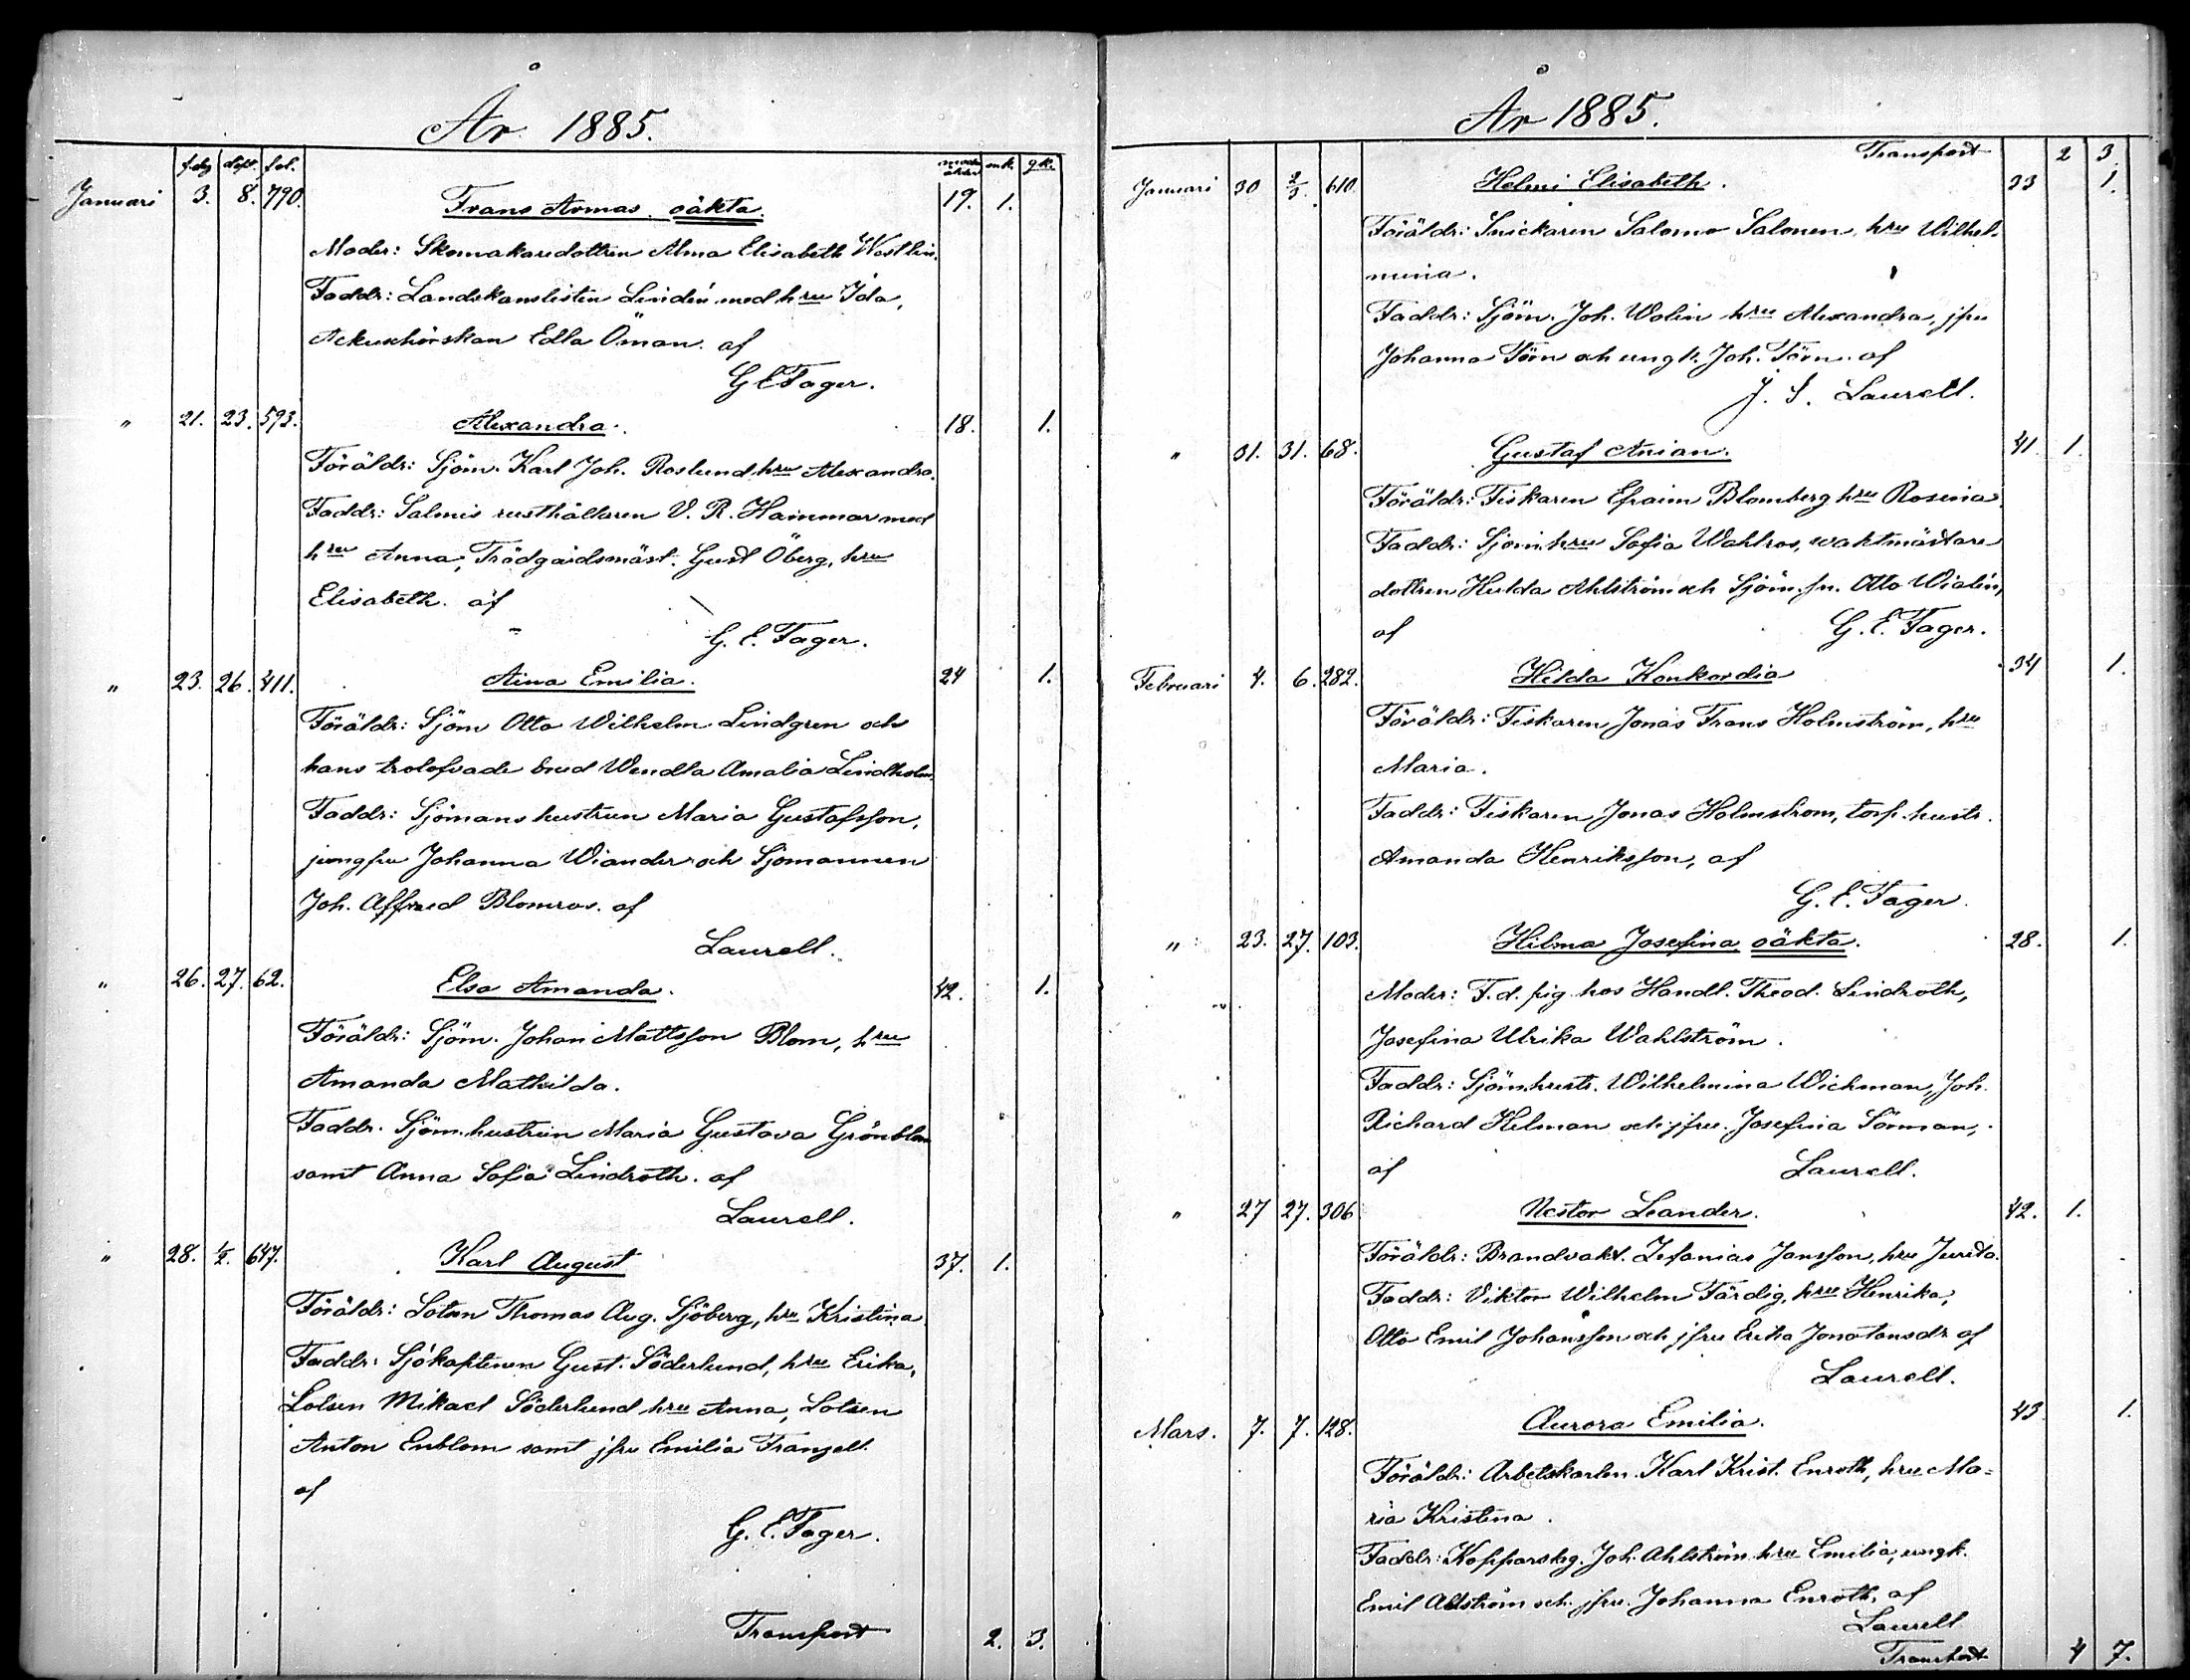 År 1885.
f.dg döpt. fol. mod. ålder mk. qk.
Januari 3. 8. 790. Frans Armas. oäkta. 19. 1.
Moder: Skomakaredottren Alma Elisabeth Westlin.
Faddr: Landskanslisten Lindén med hru Ida,
Ackuschörskan Edla Öman. af
G E Fager.
" 21. 23. 593. Alexandra. 18. 1.
Föräldr: Sjöm. Karl Joh. Roslund hru Alexandra.
Faddr: Salmis rusthållaren V. R. Hammar med
hru Anna, Trädgårdsmäst. Gust Öberg, hru
Elisabeth. af
G. E. Fager.
" 23. 26. 411. Aina Emilia. 24 1.
Föräldr: Sjöm Otto Wilhelm Lindgren och
hans trolofvade brud Wendla Amalia Lindholm.
Faddr: Sjömans hustrun Maria Gustafsson,
jungfru Johanna Wiander och Sjömannen
Joh. Alfred Blomros. af
Laurell.
" 26. 27. 62. Elsa Amanda. 42. 1.
Föräldr: Sjöm. Johan Mattsson Blom, hru
Amanda Mathilda.
Faddr. Sjöm. hustrun Maria Gustava Grönblom
samt Anna Sofia Lindroth. af
Laurell.
" 28. 1/2. 647. Karl August 37. 1.
Föräldr: Lotsen Thomas Aug. Sjöberg, hru Kristina
Faddr: Sjökaptenen Gust. Söderlund, hru Erika,
Lotsen Mikael Söderlund hru Anna, Lotsen
Anton Enblom samt jfru Emilia Franzell.
af
G. E. Fager.
Transport 2. 3.
År 1885.
Transport 2 3.
Januari 30 2/3. 610. Helmi Elisabeth. 33 1.
Föräldr: Snickaren Salomo Salonen, hru Wilhel-
mina.
Faddr: Sjöm. Joh. Wolin hru Alexandra, jfru
Johanna Törn och ungk. Joh. Törn. af
J. S. Laurell.
" 31. 31. 68. Gustaf Anian. 41. 1.
Föräldr: Fiskaren Efraim Blomberg hru Rosina.
Faddr: Sjöm. hru Sofia Wahlros, waktmästare
dottren Hulda Ahlström och Sjöm. sn. Otto Wialén,
af G. E. Fager.
Februari 4. 6. 282. Hilda Konkordia 34 1.
Föräldr: Fiskaren Jonas Frans Holmström, hru
Maria.
Faddr: Fiskaren Jonas Holmström, torp. hustr.
Amanda Henriksson, af
G. E. Fager.
" 23. 27. 103. Hilma Josefina oäkta. 28. 1.
Moder: F.d. pig. hos Handl. Theod. Lindroth,
Josefina Ulrika Wahlström.
Faddr: Sjöm. hustr. Wilhelmina Wichman, Joh.
Richard Helman och jfru. Josefina Sörman,
af Laurell.
" 27 27. 306. Nestor Leander. 42. 1.
Föräldr: Brandvakt. Zefanias Jansson, hru Jurida.
Faddr: Viktor Wilhelm Färdig, hru Henrika,
Otto Emil Johansson och jfru Erika Jonatansdr. af
Laurell.
Mars. 7. 7. 128. Aurora Emilia. 43 1.
Föräldr: Arbetskarlen Karl Krist. Enroth, hru Ma=
ria Kristina.
Faddr: Kopparslag. Joh. Ahlström hru Emilia, ungk.
Emil Ahlström och jfru. Johanna Enroth, af
Laurell
Transport 4 7.